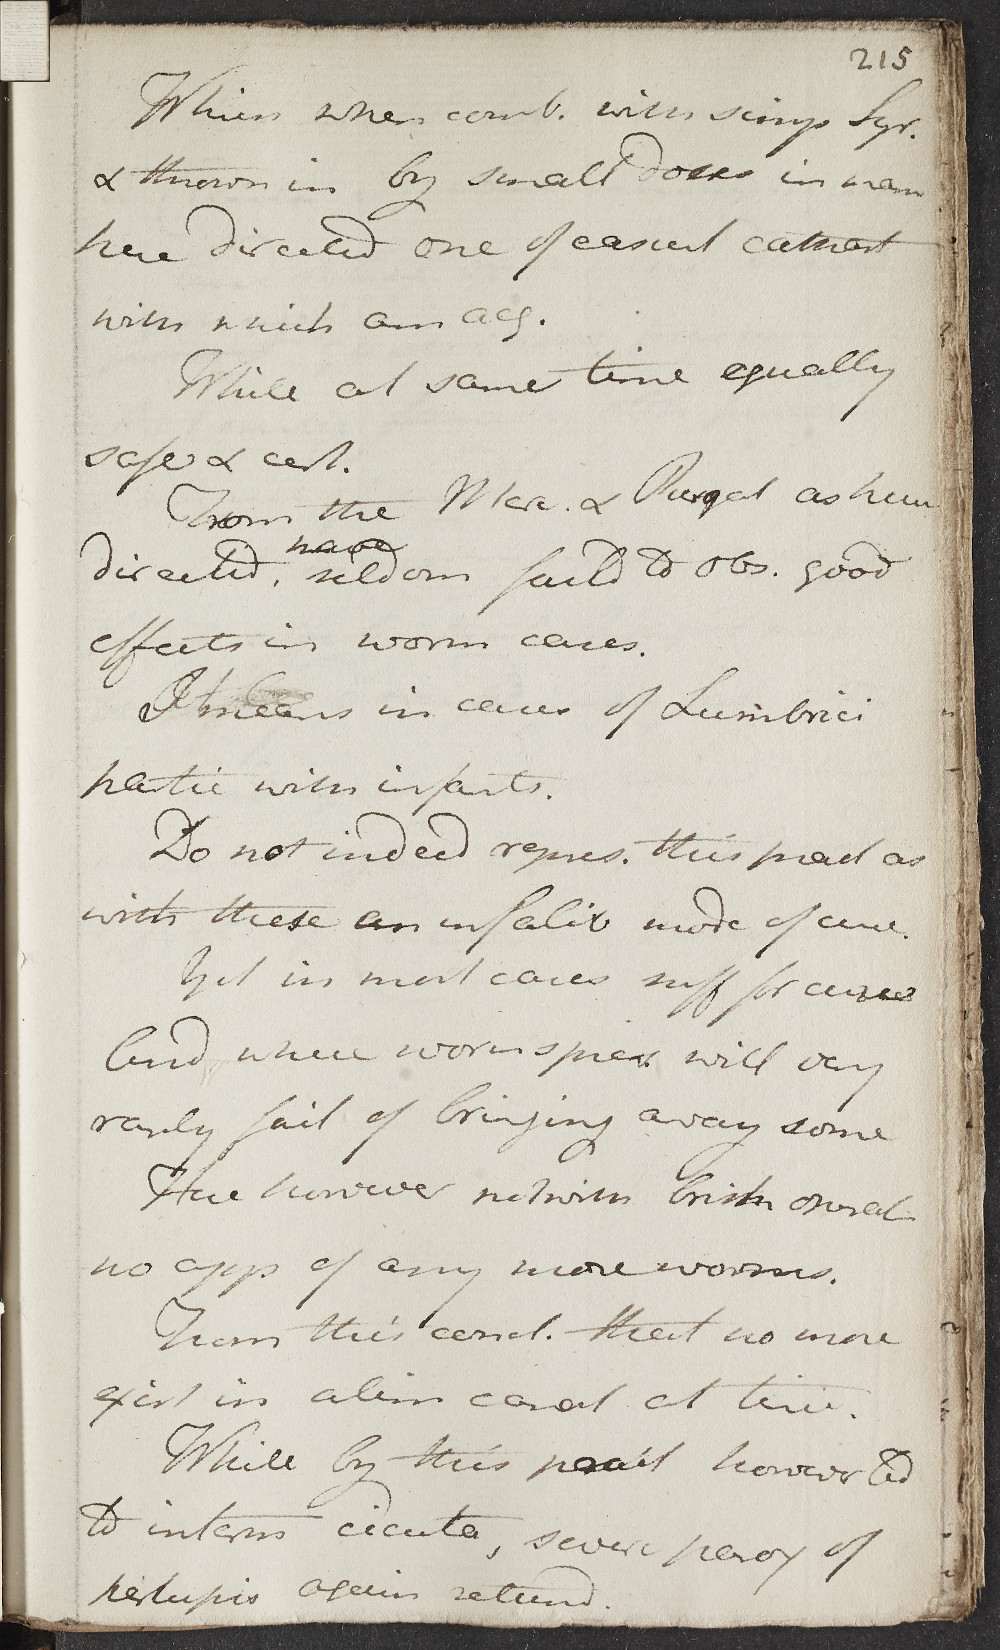 215
When when comb. with simp Syr.
& thrown in by small doses in man
here directed one of easiest cathart
with which am acq.
While at same time equally
safe & cert.
From the Merc. & Purgat as here
directed, have seldom faild to obs. good
effects in worm cases.
I means in cases of Lumbrici
partic with infants.
Do not indeed repres. this pract as
with these an infalib mode of cure.
Yet in most cases suff for cure
And where worms pres will very
rarly fail of bringing away some
Here however notwith brisk operat
no app of any more worms.
From this concl. that no more
exist in alim canal at time.
While by this pract however led
to interm cicuta, severe parox of
pertussis again returnd.